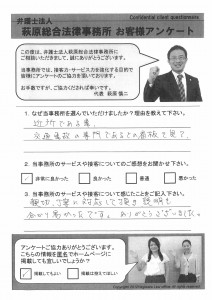 Confidential client questionnaire
弁護士法人
萩原総合法律事務所 お客様アンケート
この度は、弁護士法人萩原総合法律事務所に
ご相談いただきまして、誠にありがとうございます。
当事務所では、接客力・サービス力を強化する目的で
皆様にアンケートのご協力を頂いております。
お手数ですが、ご協力くだされば幸いです。
代表 萩原 慎二
1. なぜ当事務所を選んでいただけましたか?理由を教えて下さい。
近所である事
交通事故の専門であるとの看板を見て
2. 当事務所のサービスや接客についてのご感想をお聞かせ下さい。
非常に良かった
良かった
普通
悪かった
3. 当事務所のサービスや接客について感じたことをご記入下さい。
親切、丁寧に対応して頂き説明も
わかり易かったです。ありがとうございました。
アンケートご協力ありがとうございます。
こちらの情報を匿名でホームページに
掲載しても宜しいでしょうか?
掲載してもよい
掲載は控えてほしい